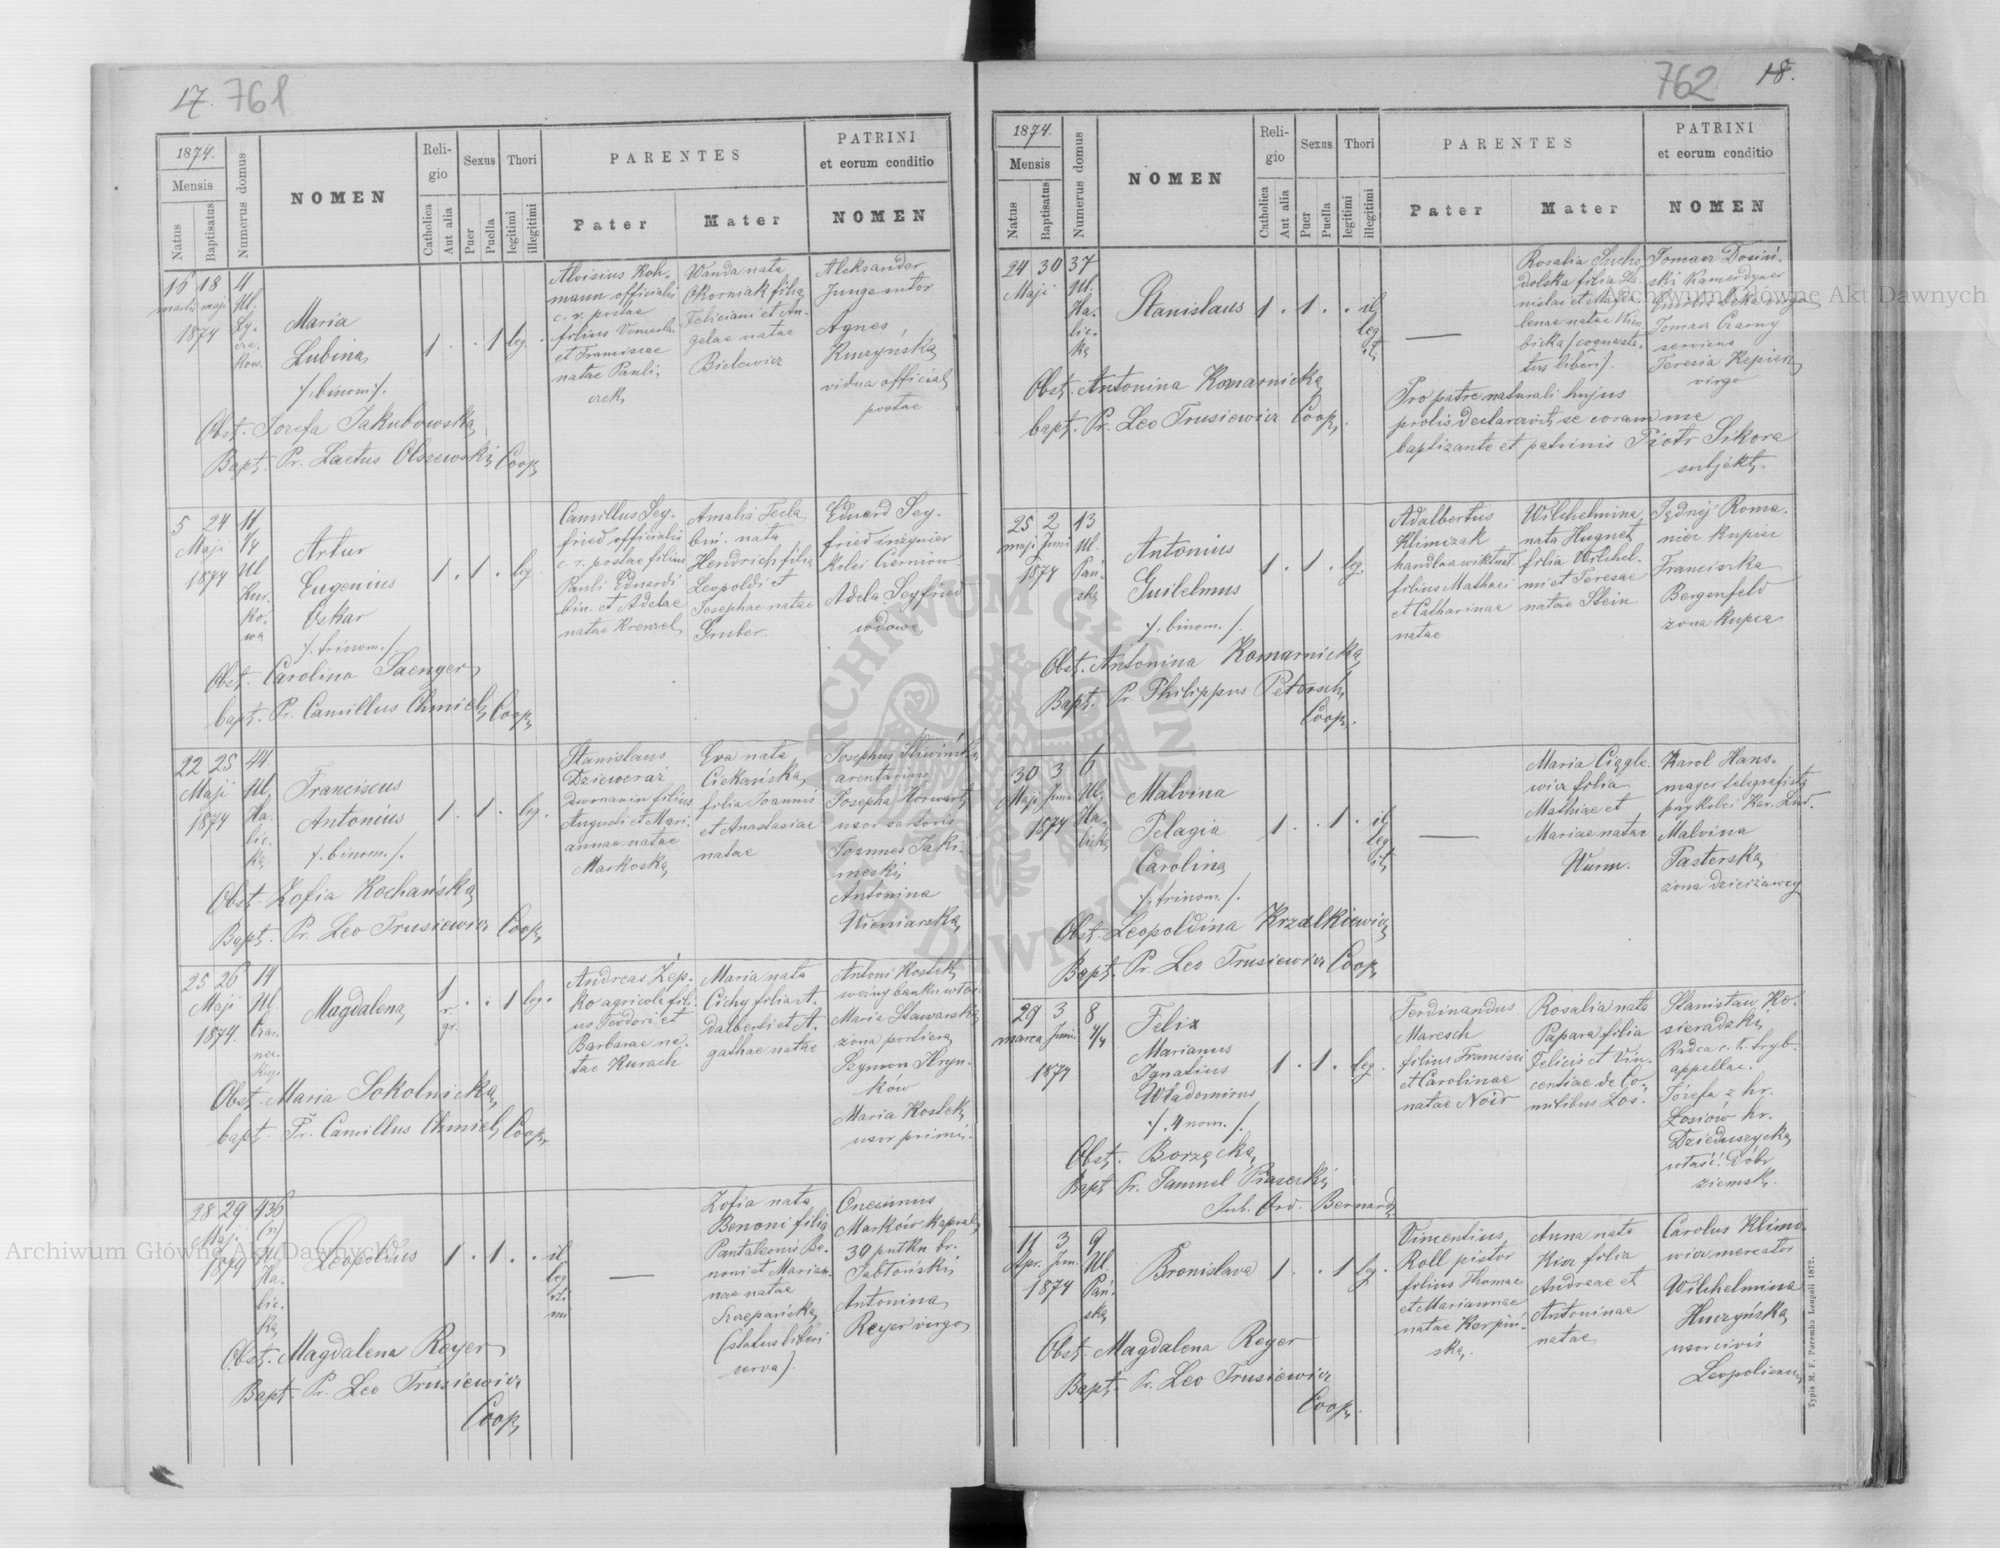 17. 761
1874.
Mensis
Natus
Baptisatus
Numerus domus
NOMEN
Reli-
gio
Catholica
Aut alia
Sexus
Puer
Puella
Thori
legitimi
illegitimi
PARENTES
Pater
Mater
PATRINI
et eorum conditio
NOMEN
15 18 4
martii maji Ul.
1874
Maria
Lubina
/. binom /.
1 . . 1 leg. .
Aloisius Koh-
mann officialis
c. r. postae
filius Venceslai
et Franciscae
natae Pauli-
czek
Wanda nata
Okorniak filia
Feliciani et An-
gelae natae
Bielewicz
Aleksander
Junge sutor
Agnes
Ruczynska
vidua official
postae
Obst. Jozefa Jakubowska
Bapt. Pr. Laetus Olszewski Coop.
5 24 11
Maji 1/4
1874 Ul
Kur-
ko-
wa
Artur
Eugenius
Oskar
/. trinom. /.
1 . 1 . leg.
Camillus Sey-
fried officialis
c. r. postae filius
Pauli Eduardi
bin. et Adelae
natae Krenzel
Amalia Tecla
bin. nata
Hendrich filia
Leopoldi et
Josephae natae
Gruber.
Eduard Sey-
fried inżynier
kolei Czerniow.
Adela Seyfried
wdowa
Obst. Carolina Saenger
bapt. Pr. Camillus Chmiel Coop.
22 25 44.
Maji Ul.
1874 Ha-
lic-
ka
Franciscus
Antonius
/. binom /.
1 . 1 . leg.
Stanislaus
Dziewerar
dwornanin filius
Augusti et Mari-
annae natae
Markoska
Eva nata
Ciekańska
filia Joannis
et Anastasiae
natae
Josephus Sliwiński
arentarius
Josepha Horwart
uxor sartoris
Joannes Jaki-
meski
Antonina
Winiarska
Obst. Zofia Kochańska
Bapt. Pr. Leo Trusiewicz Coop.
25 26 14
Maji Ul.
1874. Czar-
nec-
kiego
Magdalena
1 . . 1 leg.
r.
gr.
Andreas Zep-
ko agricola fili-
us Teodori et
Barbarae na-
tae Kurach
Maria nata
Cichy filia A-
dalberti et A-
gathae natae
Antoni Kostek
woźny banku włoś.
Maria Stawarska
żona portiera
Szymon Hryn-
ków
Maria Kostek
uxor primi.
Obst. Maria Sokolnicka
bapt. Pr. Camillus Chmiel Coop.
28 29 436
Maji
1874 Ul.
Ha-
lic-
ka
Leopoldus
1 . 1 . . il
leg
iti
mi
—
Zofia nata
Benoni filia
Pantaleonis Be-
noni et Marian-
nae natae
Szczepańska
(status liberi
serva).
Onesimus
Marków kapral
30 pułku br.
Jabłoński
Antonina
Reyer virgo
Obst. Magdalena Reyer
Bapt. Pr. Leo Trusiewicz
Coop.
762 18.
1874.
Mensis
Natus
Baptisatus
Numerus domus
NOMEN
Reli-
gio
Catholica
Aut alia
Sexus
Puer
Puella
Thori
legitimi
illegitimi
PARENTES
Pater
Mater
PATRINI
et eorum conditio
NOMEN
24 30 37
Maji Ul.
Ha-
lic-
ka
Stanislaus
1 . 1 . . il
leg
it.
—
Rosalia Suchs
dolska filia Sta-
nislai et Magda-
lenae natae
status liberi).
Tomasz
ski Kamerdyner
Tomasz Czarny
serviens
Teresia Kepien
virgo
Obst. Antonina Komarnicka
bapt. Pr. Leo Trusiewicz Coop.
Pro patre naturali hujus
prolis declaravit se coram me
baptizante et patrinis Piotr Sikora
subjekt.
25 2 13
maji Junii Ul.
1874 Pań-
ska
Antonius
Guilelmus
/. binom. /.
1 . 1 . leg.
Adalbertus
Klimczak
handlarz wiktuał.
filius Mathaei
et Catharinae
natae
Wilchelmina
nata Hugnet
filia Wilchel-
mi et Teresae
natae Stein
Jędrzej Roma-
nicz kupiec
Franciszka
Bergenfeld
żona kupca
Obst. Antonina Komarnicka
Bapt. Pr. Philippus Petersch
Coop.
30 3 6
Maji Junii Ul.
1874 Ha-
licka
Malvina
Pelagia
Carolina
/. trinom. /.
1 . . 1 . il
leg
it.
—
Maria Ciggle
wicz filia
Mathiae et
Mariae natae
Wurm.
Karol Hans-
mager telegrafista
przy kolei Kar. Lud.
Malvina
Pasterska
żona dzierżawcy
Obst. Leopoldina Krzalkiewicz
Bapt. Pr. Leo Trusiewicz Coop.
29 3 8
marca Junii 4/4
1874
Felix
Marianus
Ignatius
Wladomirus
/. 4 nom. /.
1 . 1 . leg.
Ferdinandus
Maresch
filius Francisci
et Carolinae
natae Noir
Rosalia nata
Papara filia
Felicis et Vin-
centiae de Co-
mitibus Łoś.
Stanisław Ko-
sieradzki
Radca c. k. tryb.
appellac.
Józefa z hr.
Łosiów hr.
Dzieduszycka
właśc. Dóbr
ziemsk.
Obst. Borzęcka
Bapt Pr. Samuel Piasecki
Jub. Ord. Bernard.
11 3 9
Apr. Jun. Ul.
1874 Pań-
ska
Bronislava
1 . . 1 leg .
Vincentius
Roll pistor
filius Thomae
et Mariannae
natae Karpiń-
ska.
Anna nata
Kisz filia
Andreae et
Antoninae
natae
Carolus Klimo-
wicz mercator
Wilchelmina
Huczyńska
uxor civis
Leopoliensis
Obst. Magdalena Reyer
Bapt. Pr. Leo Trusiewicz
Coop.
Typis M. F. Poremba Leopoli 1872.
Archiwum Główne Akt Dawnych
Archiwum Główne Akt Dawnych
ARCHIWUM GŁÓWNE AKT DAWNYCH